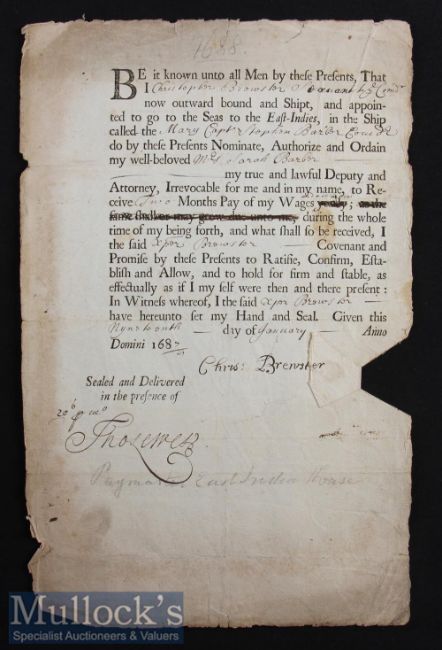 1688.
BE it known unto all Men by these Presents, That
I Christopher Brewster Servant to ye Comdr
now outward bound and Shipt, and appoin-
ted to go to the Seas to the East-Indies, in the Ship
called the Mary Captn Stephen Barber Comdr
do by these Presents Nominate, Authorize and Ordain
my well-beloved Mrs Sarah Barber
my true and lawful Deputy and
Attorney, Irrevocable for me and in my name, to Re-
ceive Two Months Pay of my Wages yearly; as the
same shall or may grow due unto me, during the whole
time of my being forth, and what shall so be received, I
the said Xpor Brewster Covenant and
Promise by these Presents to Ratifie, Confirm, Esta-
blish and Allow, and to hold for firm and stable, as
effectually as if I my self were then and there present:
In Witness whereof, I the said Xpor Brewster
have hereunto set my Hand and Seal. Given this
Nynteenth day of January Anno
Domini 1687
Chris: Brewster
Sealed and Delivered
in the presence of
Paymaster East India House
Mullock's
Specialist Auctioneers & Valuers